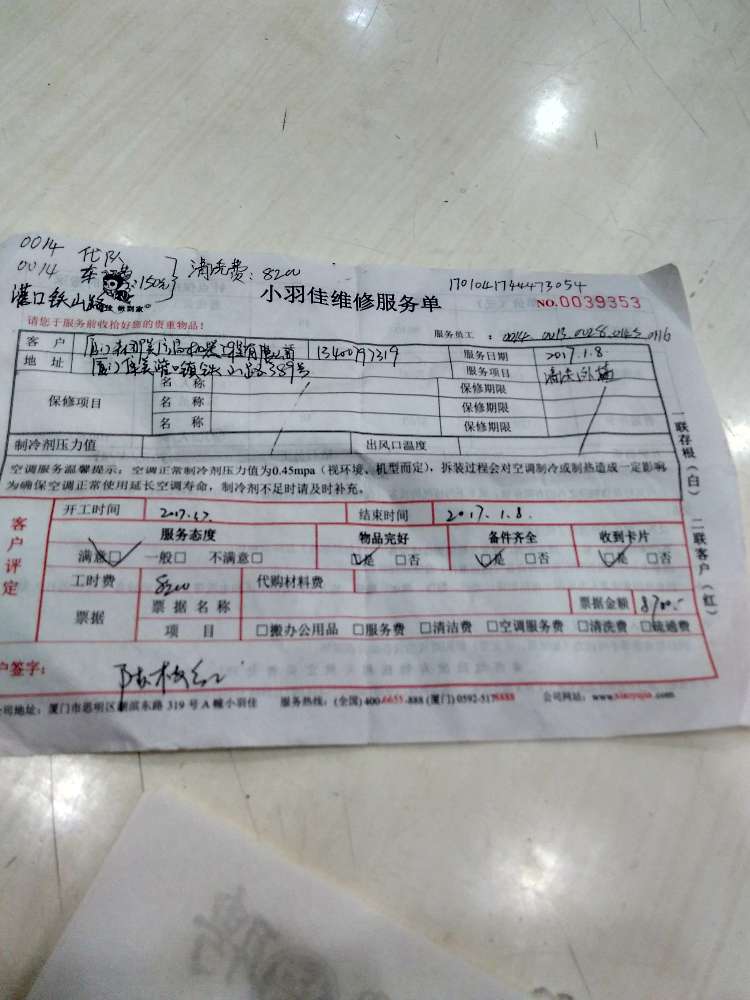 0014 代队
0014 车 150元 清洗费：8200
灌口铁山路 做到家
1701041744473054
小羽佳维修服务单
NO.0039353
请您于服务前收拾好您的贵重物品！
服务员工：0014 0013 0028 0145 0116
客户 厦门 13400797319 服务日期 2017.1.8
地址 厦门集美灌口镇铁山路389号 服务项目 清洗外墙
保修项目 名称 保修期限
名称 保修期限
名称 保修期限
制冷剂压力值 出风口温度
空调服务温馨提示：空调正常制冷剂压力值为0.45mpa（视环境、机型而定），拆装过程会对空调制冷或制热造成一定影响
为确保空调正常使用延长空调寿命，制冷剂不足时请及时补充。
一联存根（白） 二联客户（红）
客户评定
开工时间 2017.1.7 结束时间 2017.1.8.
服务态度 物品完好 备件齐全 收到卡片
满意□ 一般□ 不满意□ □是 □否 □是 □否 □是 □否
工时费 8200 代购材料费
票据 票据名称 票据金额 8700.-
项目 □搬办公用品 □服务费 □清洁费 □空调服务费 □清洗费 □疏通费
户签字：
公司地址：厦门市思明区湖滨东路 319 号 A 幢小羽佳 服务热线：(全国)400-6655-888 (厦门) 0592-5178888 公司网站：www.xiaoyujia.com